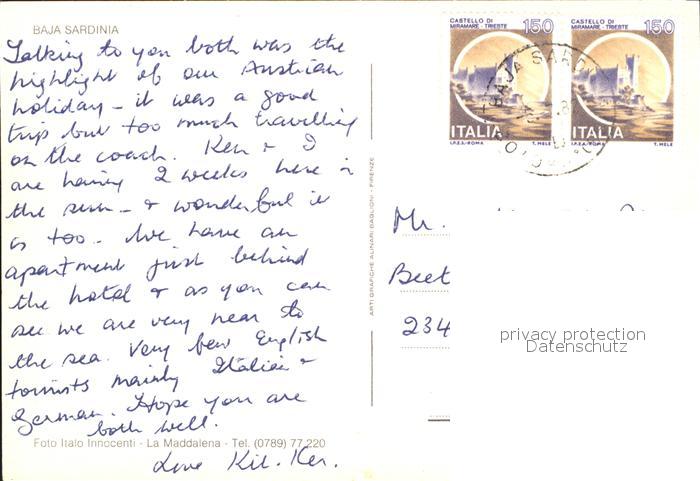 BAJA SARDINIA
Talking to you both was the
highlight of our Austrian
holiday - it was a good
trip but too much travelling
on the coach. Ken & I
are having 2 weeks here in
the sun - & wonderful it
is too. We have an
apartment just behind
the hotel & as you can
see we are very near to
the sea. Very few English
tourists mainly Italian &
German. Hope you are
both well.
Foto Italo Innocenti - La Maddalena - Tel. (0789) 77.220
Love Kit. Ken.
ARTI GRAFICHE ALINARI BAGLIONI - FIRENZE
CASTELLO DI
MIRAMARE - TRIESTE
150
ITALIA
I.P.Z.S.-ROMA T. MELE
CASTELLO DI
MIRAMARE - TRIESTE
150
ITALIA
I.P.Z.S.-ROMA T. MELE
BAJA SARD
Mr.
Beet
234
privacy protection
Datenschutz